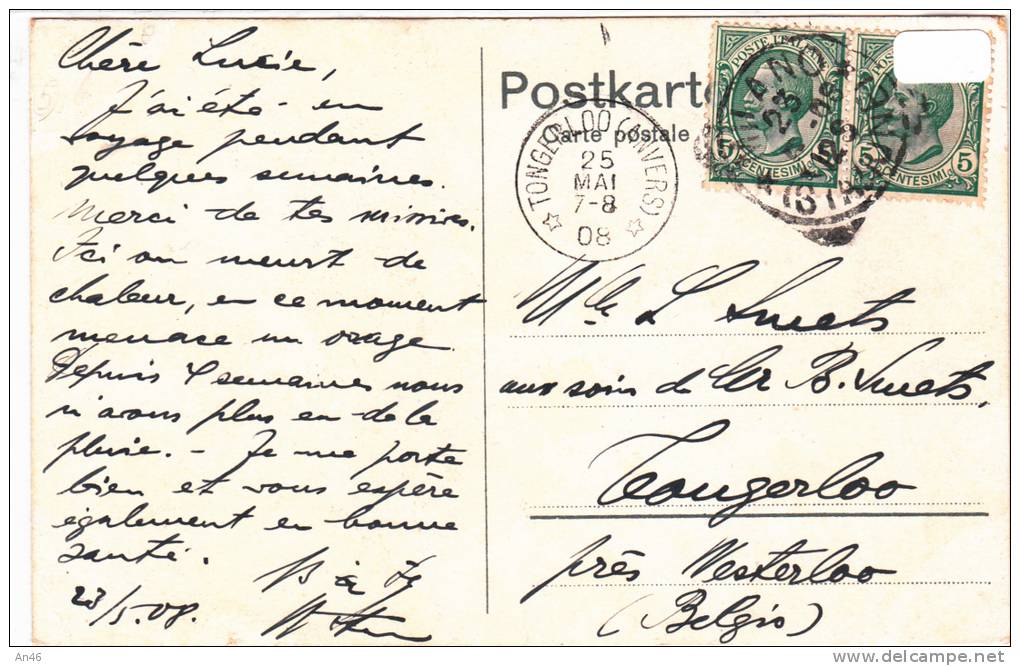 Chère Lucie,
J'ai été - en
voyage pendant
quelques semaines.
Merci de tes missives.
Ici on meurt de
chaleur, en ce moment
menace un orage.
Depuis 4 semaines nous
n'avons plus eu de la
pluie. - Je me porte
bien et vous espère
également en bonne
santé.
23/5.08.
Postkarte
Carte postale
TONGERLOO (ANVERS)
25
MAI
7-8
08
POSTE ITALIANE
5 CENTESIMI 5
5 CENTESIMI 5
MILANO
23
Mlle L Smets
aux soins de Mr B. Smets,
Tongerloo
près Westerloo
(Belgio)
An46
www.delcampe.net